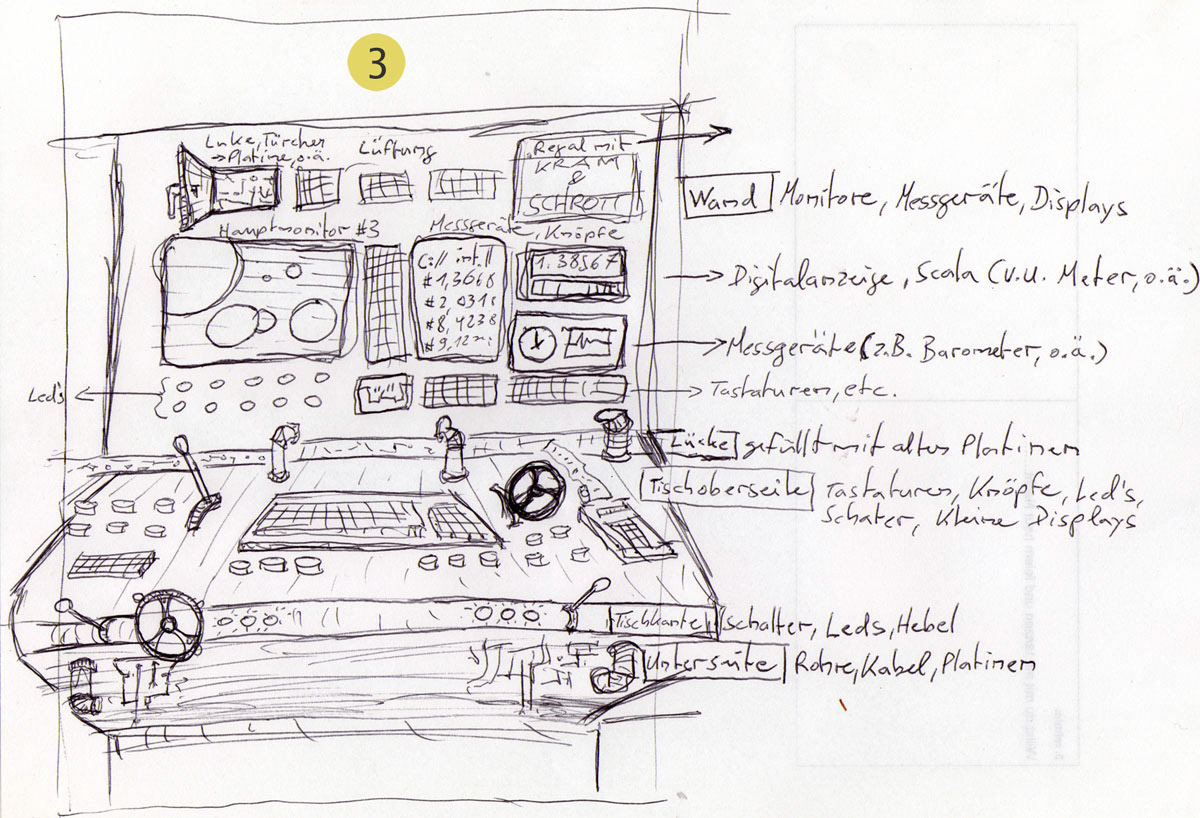 3
Luke, Türchen
→ Platine, o.ä.
Lüftung
Regal mit
KRAM
&
SCHROTT
Wand Monitore, Messgeräte, Displays
Hauptmonitor #3
Messgeräte, Knöpfe
C:// int.//
#1,3668
#2,0318
#8,4238
1.38567
Digitalanzeige, Scala (v.u. Meter, o.ä.)
Messgeräte (z.B. Barometer, o.ä.)
Led's
Tastaturen, etc.
Lücke gefüllt mit alten Platinen
Tischoberseite Tastaturen, Knöpfe, Led's,
Schater, kleine Displays
Tischkante Schalter, Leds, Hebel
Unterseite Rohre, Kabel, Platinen